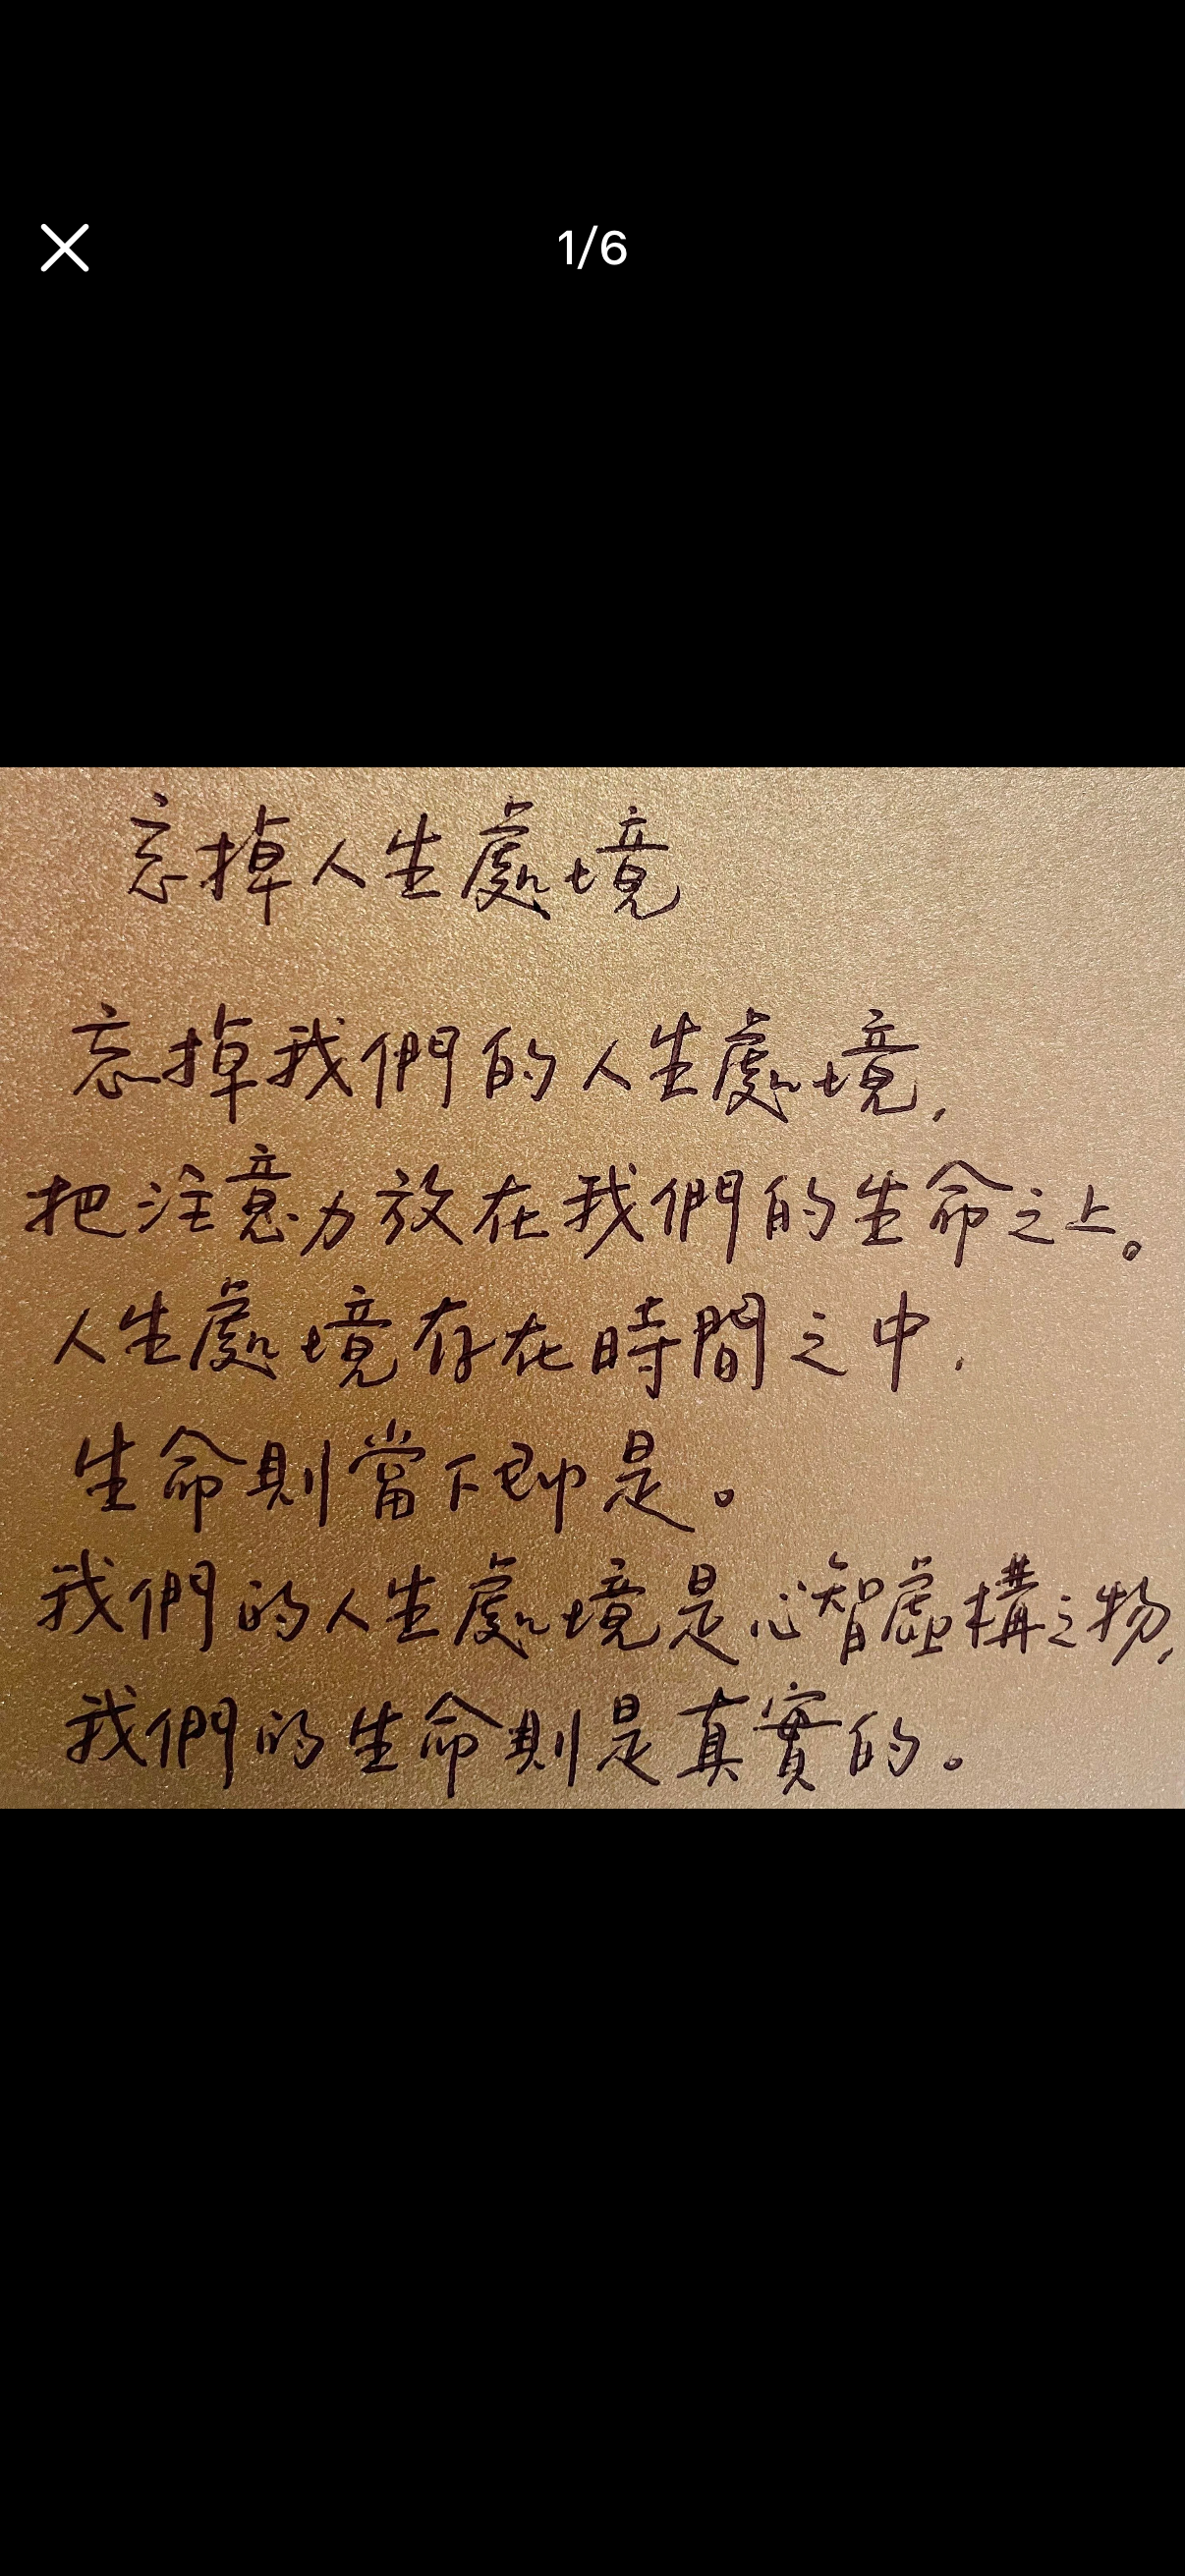 1/6
忘掉人生處境
忘掉我們的人生處境,
把注意力放在我們的生命之上。
人生處境存在時間之中,
生命則當下即是。
我們的人生處境是心智虛構之物,
我們的生命則是真實的。